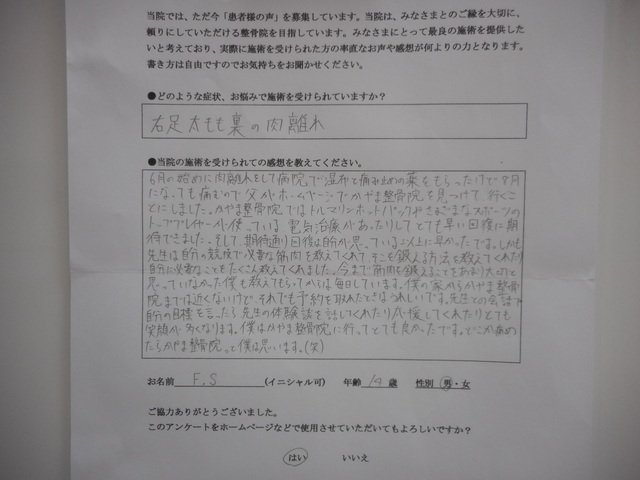 当院では、ただ今「患者様の声」を募集しています。当院は、みなさまとのご縁を大切に、
頼りにしていただける整骨院を目指しています。みなさまにとって最良の施術を提供した
いと考えており、実際に施術を受けられた方の率直なお声や感想が何よりの力となります。
書き方は自由ですのでお気持ちをお聞かせください。
●どのような症状、お悩みで施術を受けられていますか？
右足太もも裏の肉離れ
●当院の施術を受けられての感想を教えてください。
6月の始めに肉離れをして病院で湿布と痛み止めの薬をもらったけど7月
になっても痛むので父がホームページでかやま整骨院を見つけて行くこ
とにしました。かやま整骨院ではトルマリンホットパックやさまざまなスポーツの
トッププレイヤーが使っている電気治療があったりしてとても早い回復に期
待できました。そして、期待通り回復は自分が思っている以上に早かったです。しかも
先生は自分の競技で必要な筋肉を教えてくれて、そこを鍛える方法を教えてくれたり
自分に必要なこともたくさん教えてくれました。今まで筋肉を鍛えることをあまり大切と
思っていなかった僕も教えてもらってからは毎日しています。僕の家からかやま整骨
院までは近くないけど、それでも予約を取れたときはうれしいです。先生との会話で
自分の目標を言ったら先生の体験談を話してくれたり応援してくれたりとても
笑顔が多くなります。僕はかやま整骨院に行ってとても良かったです。どこか痛め
たらかやま整骨院って僕は思います。(笑)
お名前 F.S (イニシャル可) 年齢 14 歳 性別 男・女
ご協力ありがとうございました。
このアンケートをホームページなどで使用させていただいてもよろしいですか？
はい いいえ